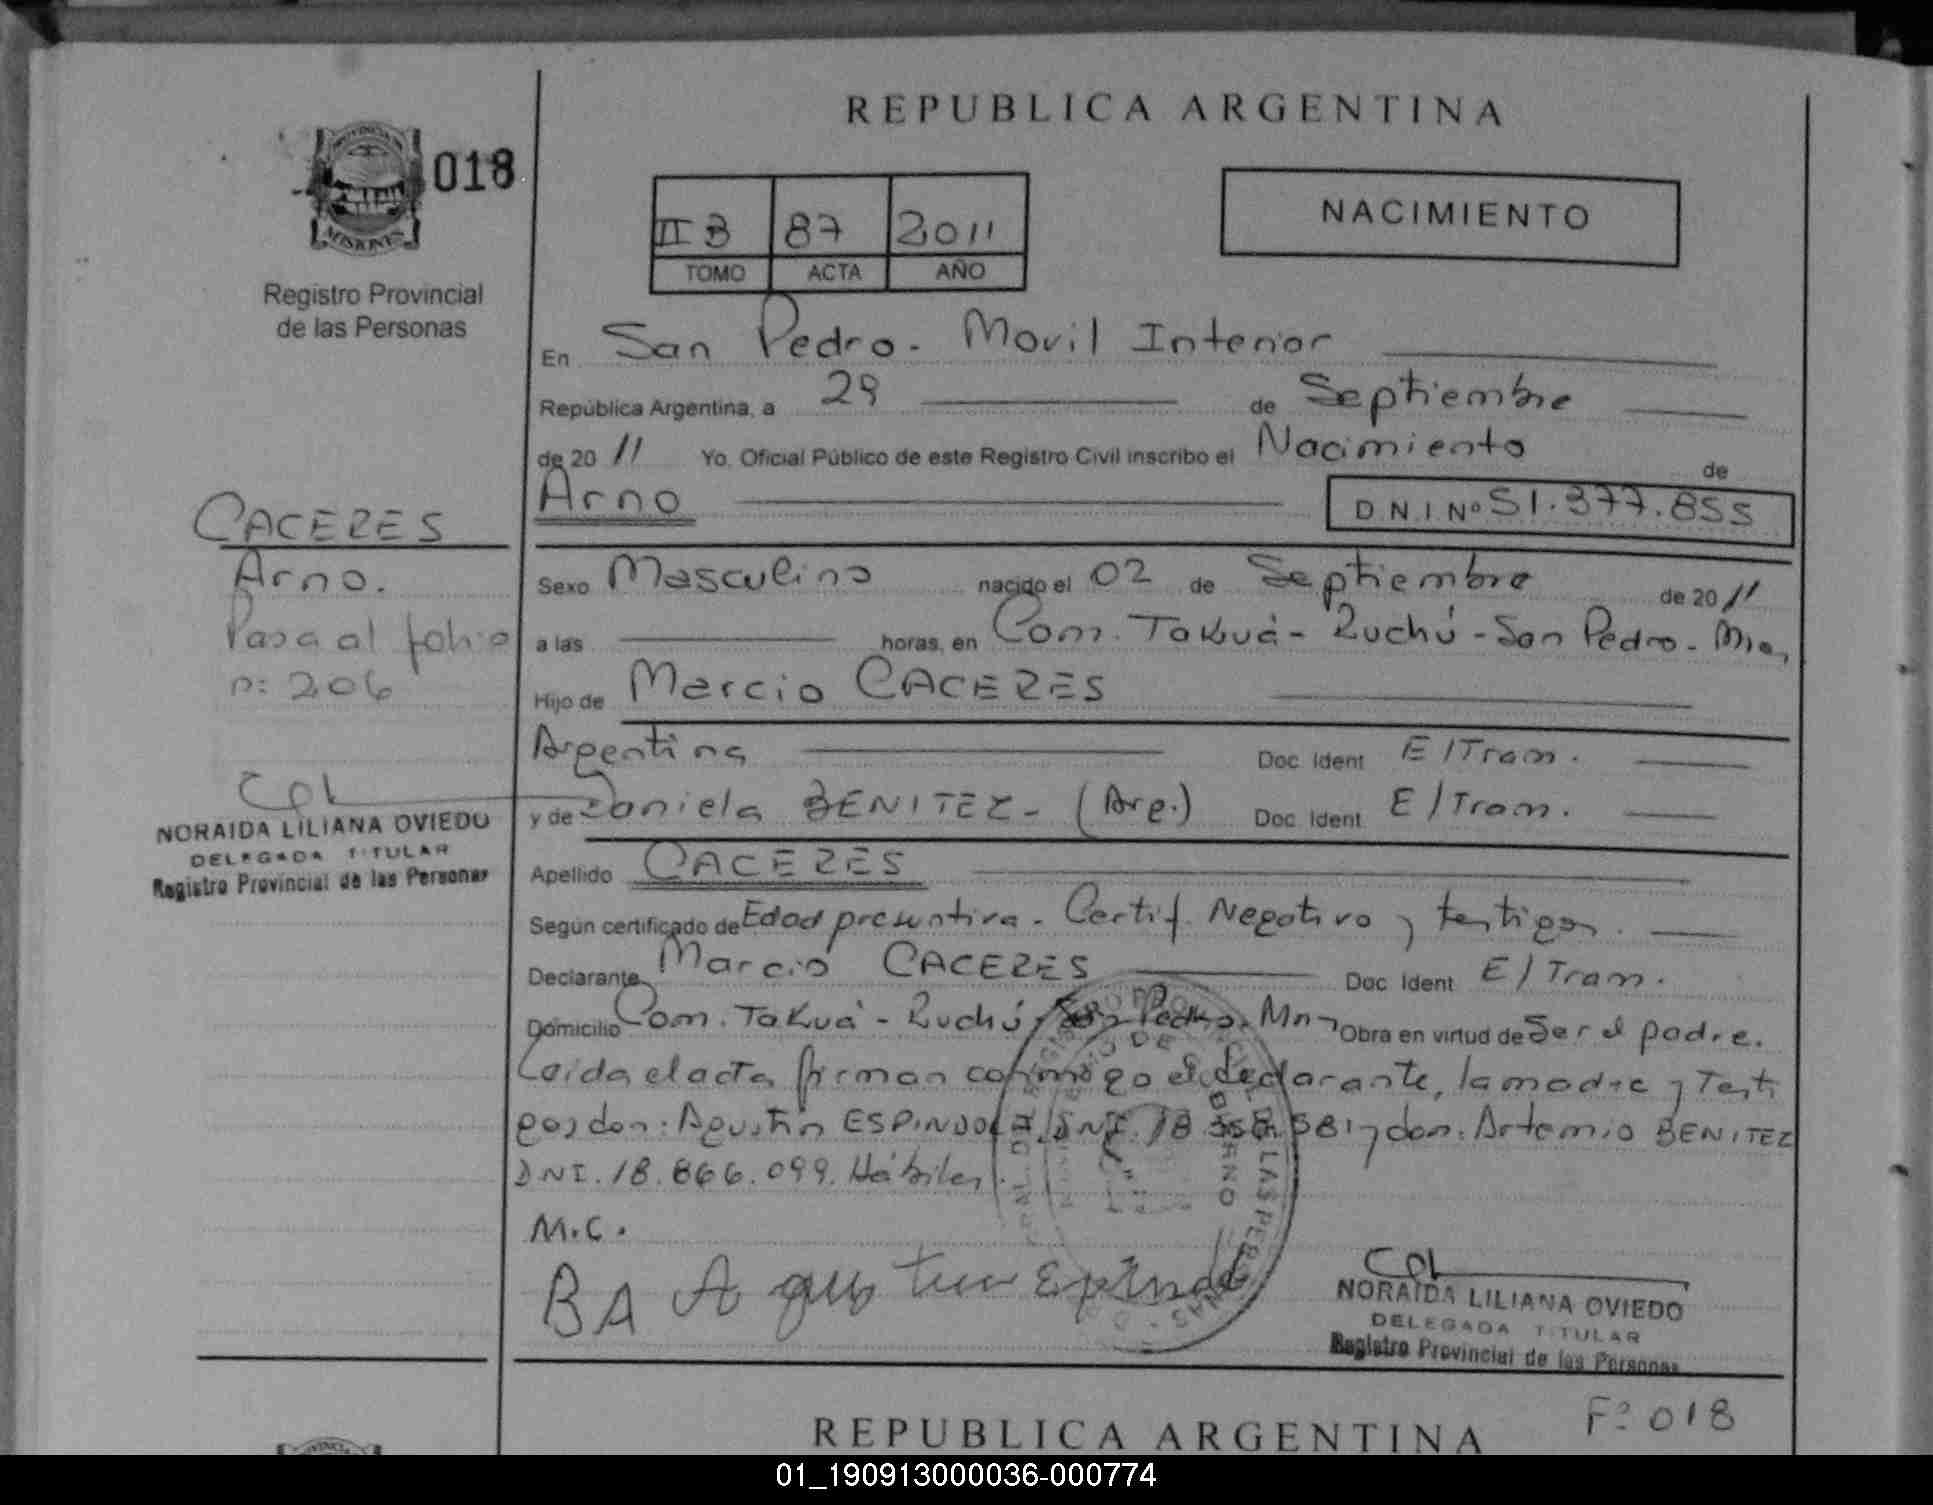 REPUBLICA ARGENTINA
PROVINCIA
MISIONES
018
Registro Provincial
de las Personas
II B 87 2011
TOMO ACTA AÑO
NACIMIENTO
En San Pedro - Movil Interior
República Argentina, a 29 de Septiembre
de 2011 Yo, Oficial Público de este Registro Civil inscribo el Nacimiento de
Arno D.N.I. Nº 51.377.855
CACERES
Arno.
Pasa al folio
nº 206
Sexo Masculino nacido el 02 de Septiembre de 2011
a las horas, en Com. Takuá - Ruchú - San Pedro - Mnes
Hijo de Marcio CACERES
Argentina Doc. Ident E/Tram.
y de Daniela BENITEZ - (Arg.) Doc. Ident E/Tram.
NORAIDA LILIANA OVIEDO
DELEGADA TITULAR
Registro Provincial de las Personas
Apellido CACERES
Según certificado de Edad presuntiva - Certif. Negativo y testigos.
Declarante Marcio CACERES Doc. Ident E/Tram.
Domicilio Com. Takuá - Ruchú, San Pedro, Mnes Obra en virtud de Ser el padre.
Leída el acta firman conmigo el declarante, la madre y Testi
gos don: Agustín ESPINDOLA DNI. 18 581 y don: Artemio BENITEZ
DNI. 18.866.099. Hábiles.
M.C.
BA Agustin Espindola
NORAIDA LILIANA OVIEDO
DELEGADA TITULAR
Registro Provincial de las Personas
Fº 018
REPUBLICA ARGENTINA
01_190913000036-000774